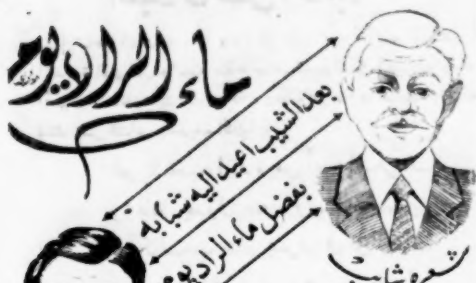 ماء الراديوم
بعد الشيب اعيد اليه شبابه
بفضل ماء الراديوم
شعره شايب